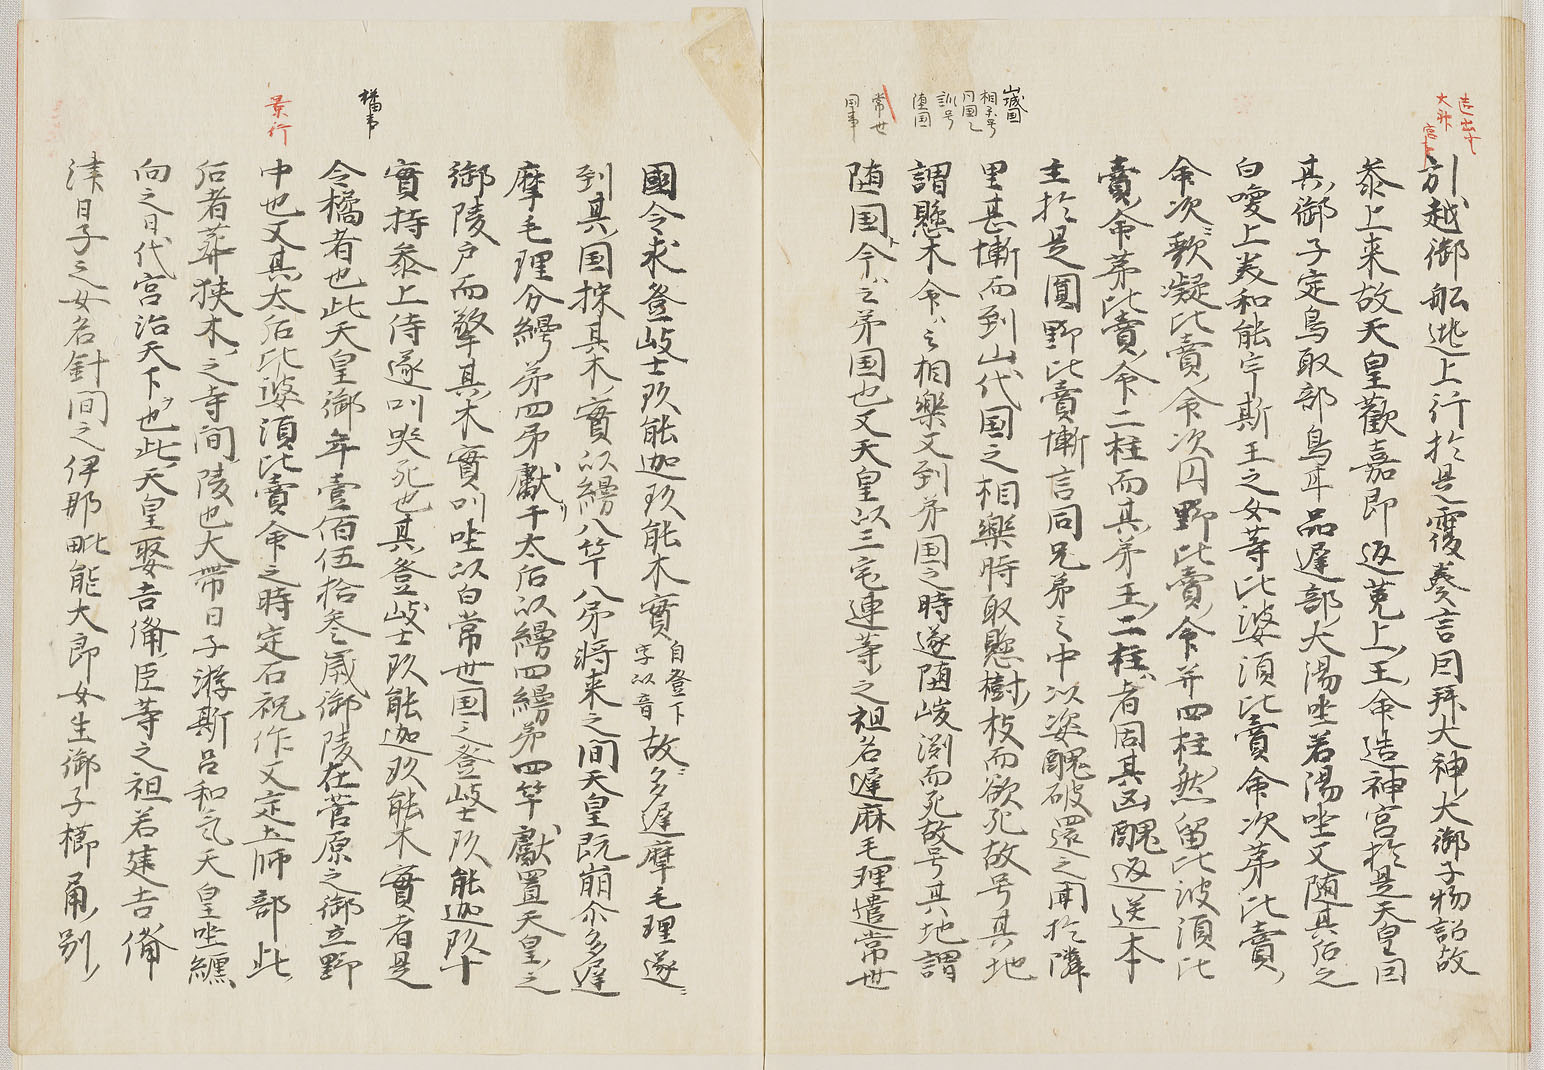 引越御船逃上行於是覆奏言因拜大神大御子物詔故
参上来故天皇歓嘉即返菟上王命造神宮於是天皇因
其御子定鳥取部鳥耳品遅部大湯坐若湯坐又随其后之
白喚上美和能宇斯王之女等比婆須比賣命次弟比賣
命次歌凝比賣命次円野比賣命并四柱然留比波須比
賣命弟比賣命二柱而其弟王二柱者因其凶醜返送本
主於是圓野比賣慚言同兄弟之中以姿醜破還之聞於隣
里甚慚而到山代国之相樂時取懸樹枝而欲死故号其地
謂懸木今云相樂又到弟国之時遂随峻渕而死故号其地謂
随国今云弟国也又天皇以三宅連等之祖名遅麻毛理遣常世
山城国
相楽号
同国乙
訓号
随国
常世
国事
國令求登岐士玖能迦玖能木實自登下字以音故多遅摩毛理遂
到其国採其木實以縵八竿八弟将来之間天皇既崩尒多遅
摩毛理分縵弟四弟獻于太后以縵四縵弟四竿獻置天皇之
御陵戸而擎其木實叫坐以白常世国之登岐士玖能迦玖十
實持参上侍遂叫哭死也其登岐士玖能迦玖能木實者是
令橘者也此天皇御年壹佰伍拾参歳御陵在菅原之御立野
橘事
中也又其太后比婆須比賣命之時定石祝作又定土師部此
景行
后者葬狭木之寺間陵也大帶日子游斯呂和気天皇坐纒
向之日代宮治天下也此天皇娶吉備臣等之祖若建吉備
津日子之女名針間之伊那毗能大郎女生御子櫛角別